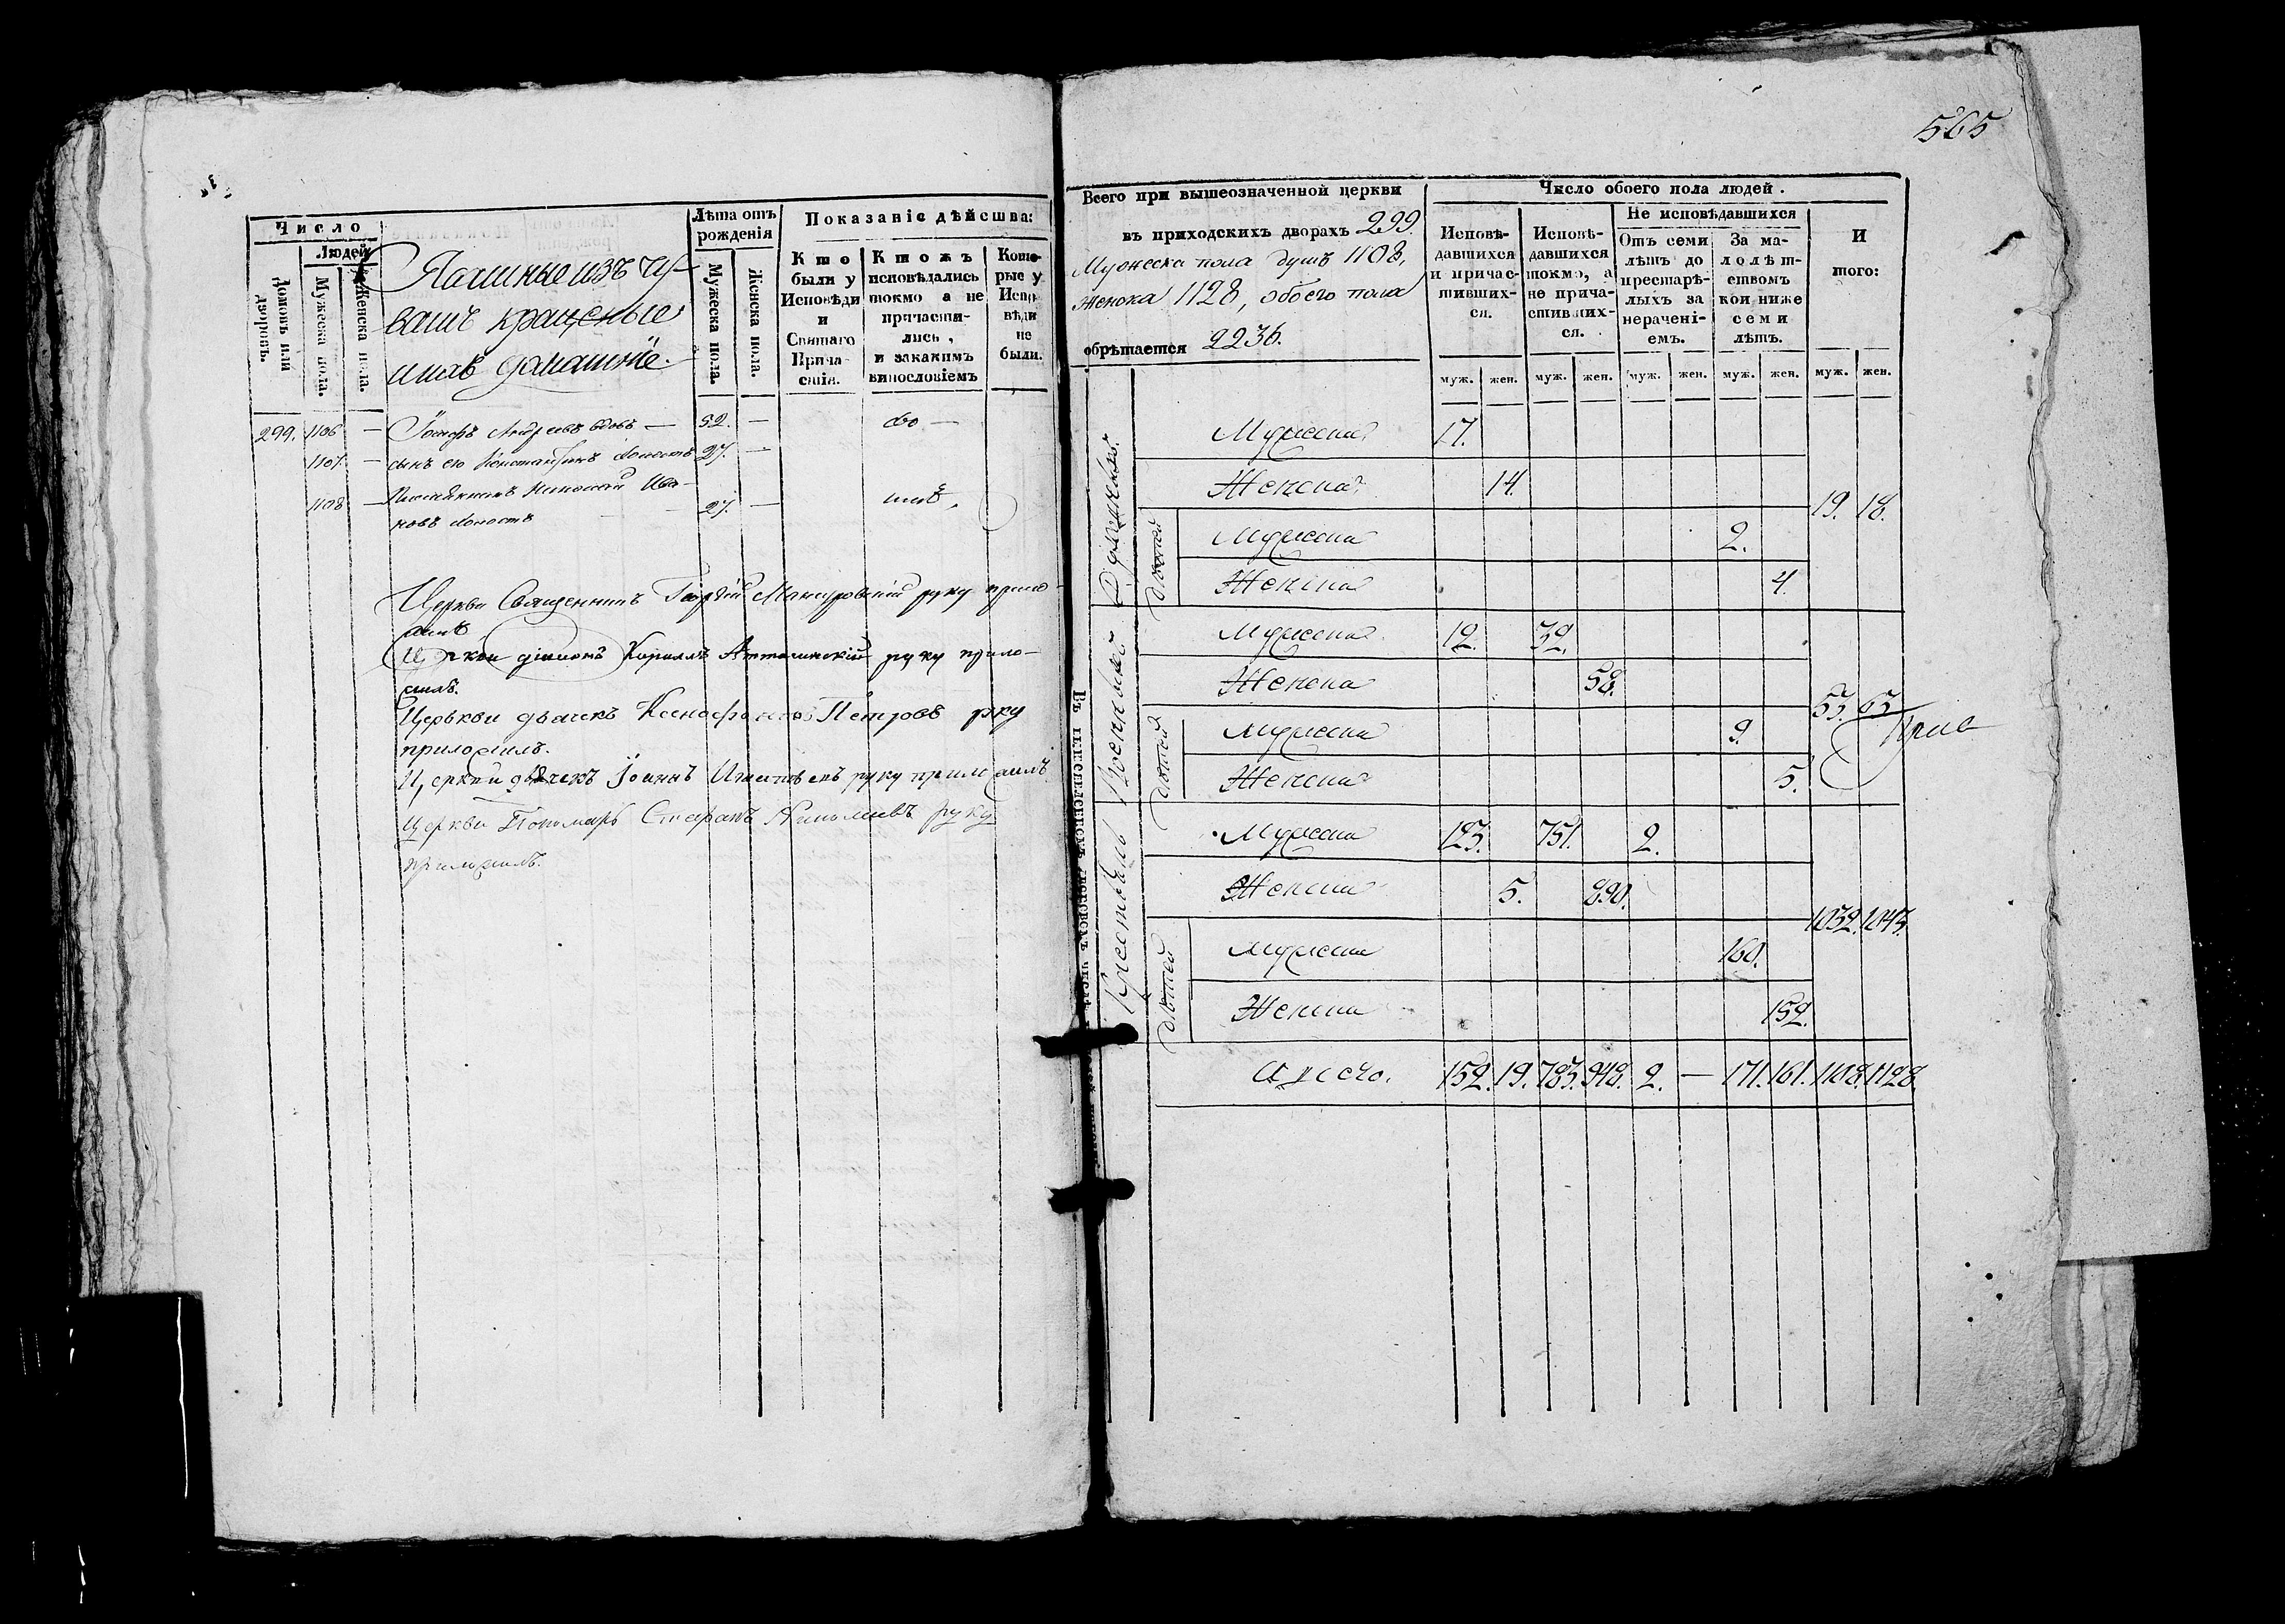 Число
Людей
Домовъ или дворовъ.
Мужеска пола.
Женска пола.
Ясашные изъ чу-
вашъ крещеные
ихъ домашніе.
Лѣта отъ рожденія
Мужеска пола.
Женска пола.
Показаніе дѣйства:
Кто были у Исповѣди и Святаго Причастія.
Ктожъ исповѣдались токмо а не причастились, и закакимъ винословіемъ
Которые у Исповѣди не были.
299. 1106 — Андреевъ вдовъ — 52. — —
1107. — сынъ его Константинъ холостъ 27. —
1108 — Николай Ива-
новъ холостъ 27. —
Церкви Священникъ Георгій руку прило-
жилъ
Церкви діаконъ Кириллъ руку прило-
жилъ.
Церькви дьячекъ Ксенофонтъ Петровъ руку
приложилъ.
Церкви дьячекъ Іоаннъ руку приложилъ
Церкви Пономарь Стефанъ руку
приложилъ.
565
Всего при вышеозначенной церкви
въ приходскихъ дворахъ 299.
Мужеска пола душъ 1108,
женска 1128, обоего пола
обрѣтается 2236.
Число обоего пола людей.
Исповѣдавшихся и причастившихся.
Исповѣдавшихся токмо, а не причастившихся.
Не исповѣдавшихся
Отъ семи лѣтъ до престарѣлыхъ за нераченіемъ.
За малолѣтствомъ кои ниже семи лѣтъ.
И того:
муж. жен. муж. жен. муж. жен. муж. жен. муж. жен.
Духовныхъ
Мужеска 17.
Женска 14.
19. 18.
Дѣтей
Мужеска 2.
Женска 4.
Военныхъ
Мужеска 12. 32.
Женска 58.
53. 63
Дѣтей
Мужеска 9.
Женска 5.
Крестьянъ
Мужеска 123. 751. 2.
Женска 5. 890.
1032. 1043.
Дѣтей
Мужеска 160.
Женска 152.
А всего. 152. 19. 783. 948. 2. — 171. 161. 1108. 1128